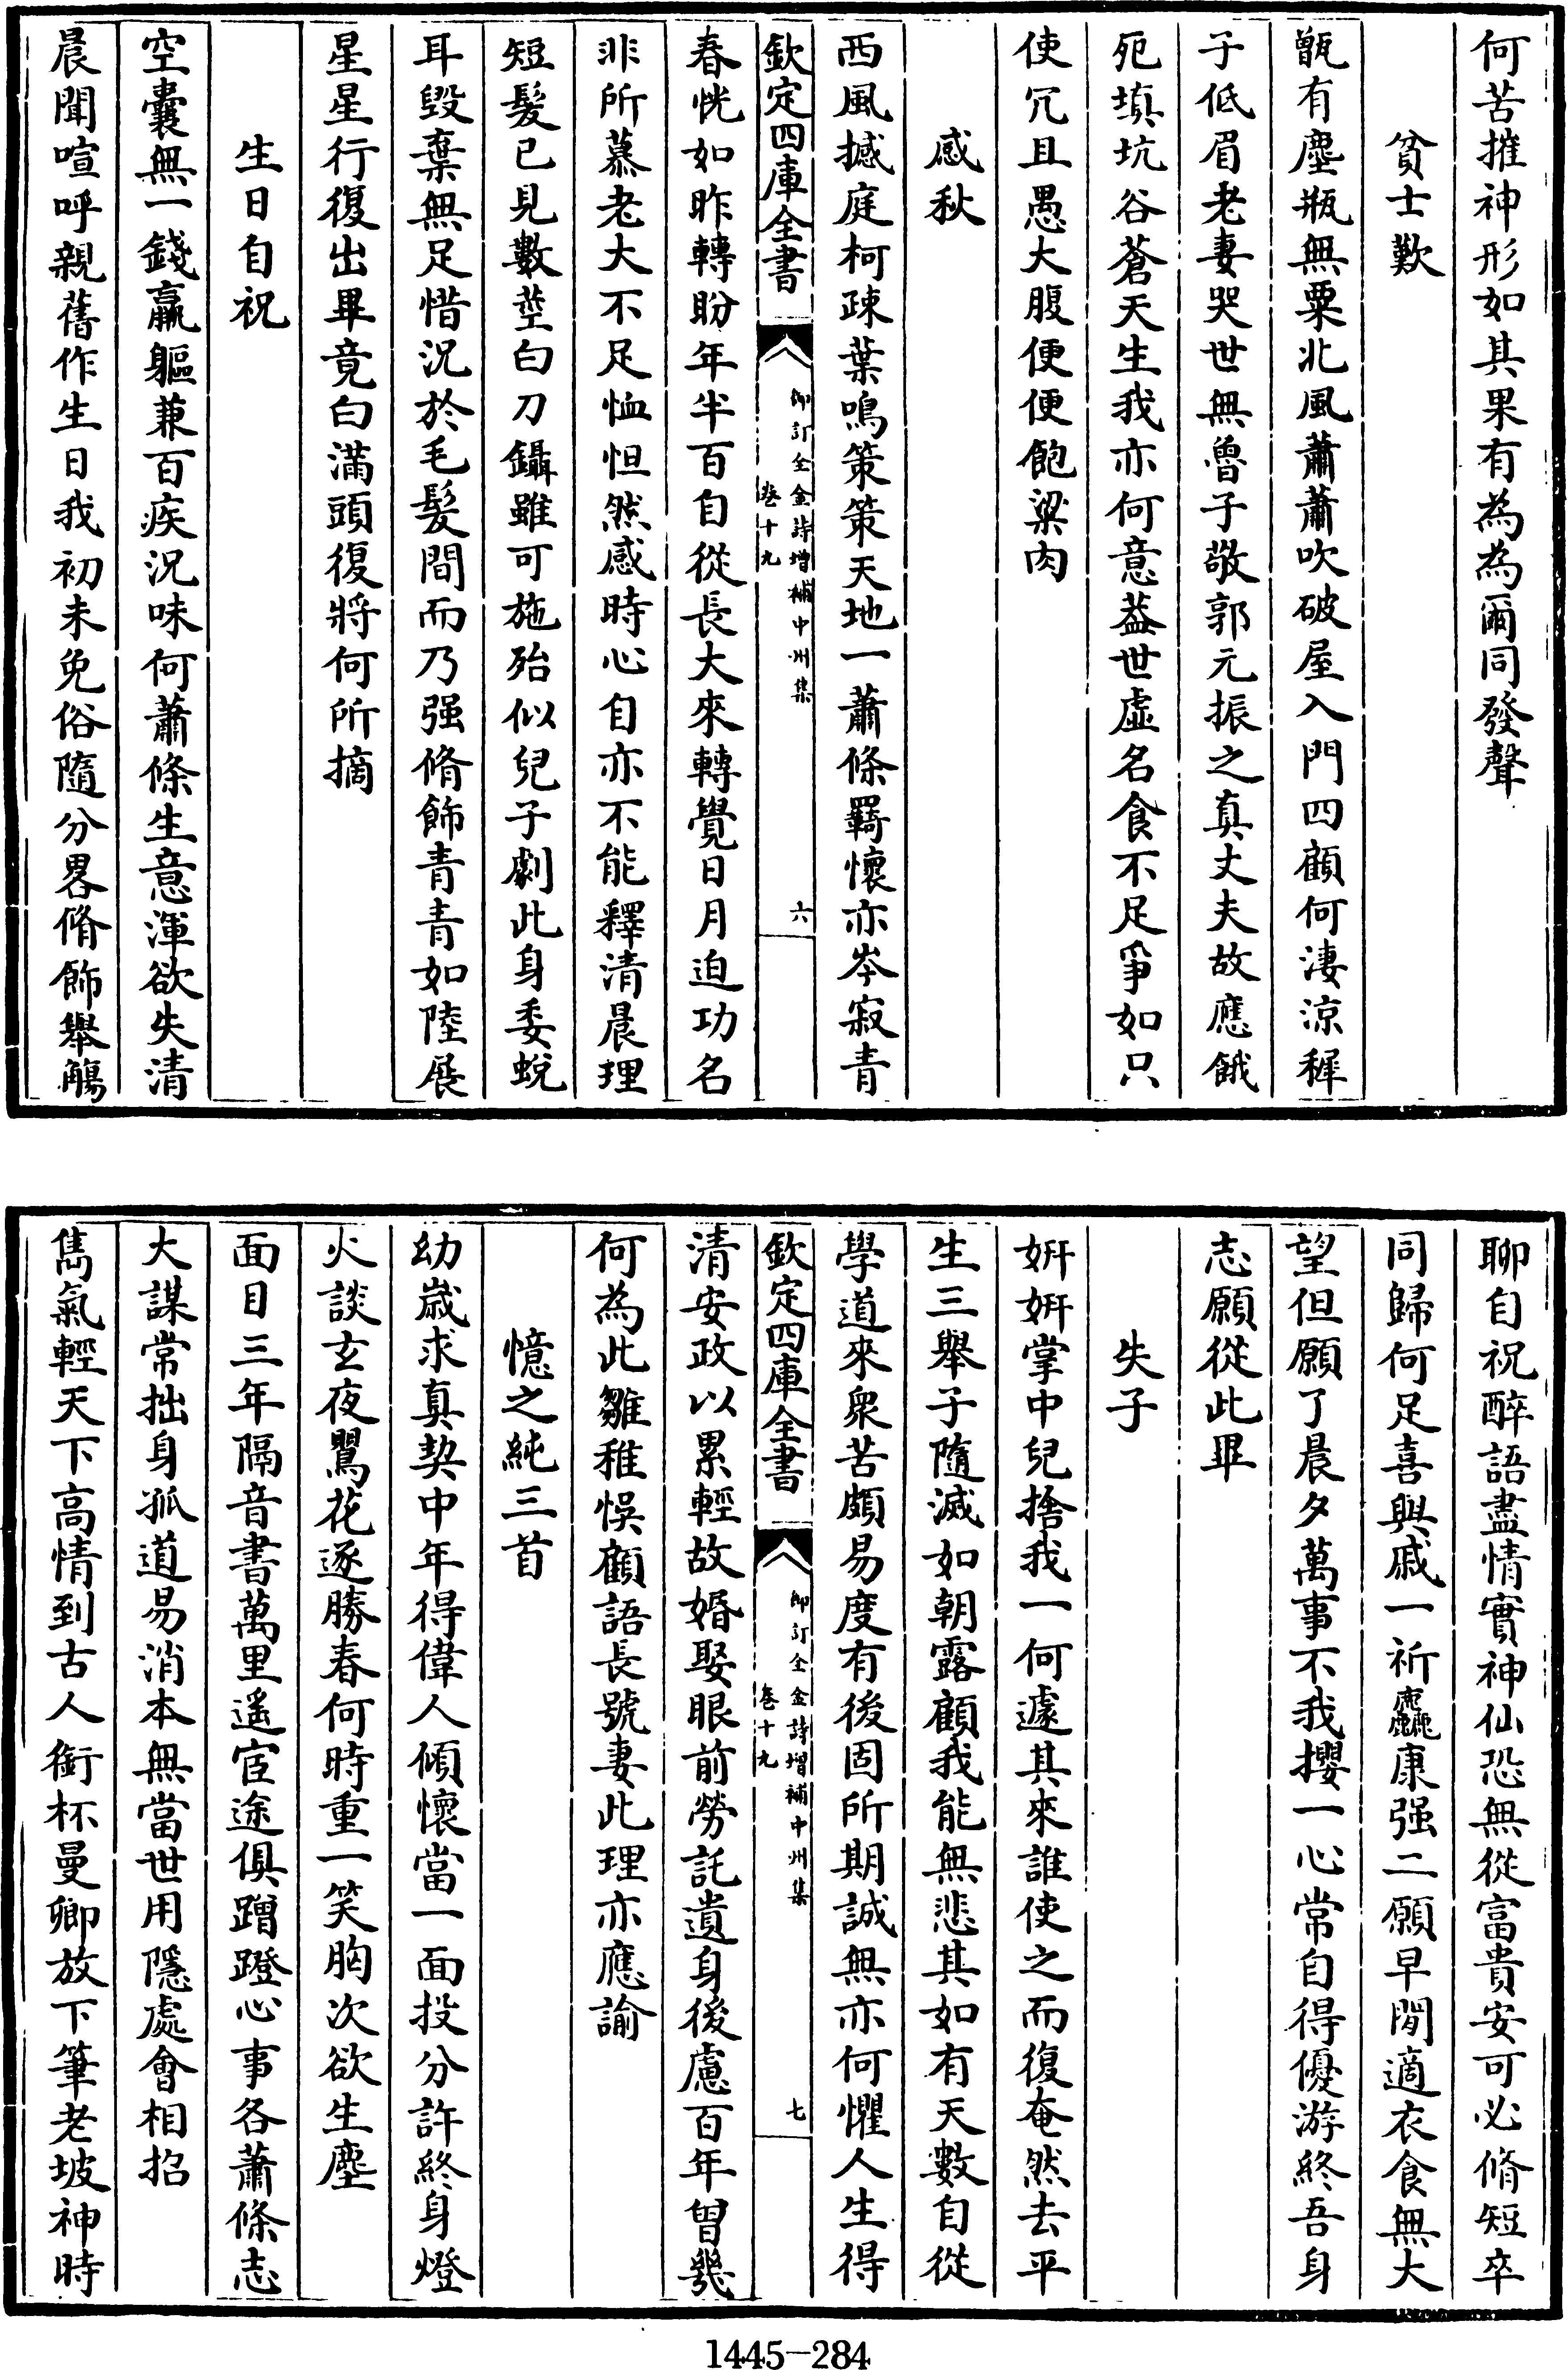 何苦摧神形如其果有為為爾同發聲
貧士歎
甑有塵瓶無粟北風蕭蕭吹破屋入門四顧何淒涼稺
子低眉老妻哭世無魯子敬郭元振之真丈夫故應餓
死填坑谷蒼天生我亦何意葢世虛名食不足爭如只
使冗且愚大腹便便飽粱肉
感秋
西風撼庭柯疎葉鳴策策天地一蕭條羇懷亦岑寂青
欽定四庫全書
御訂全金詩增補中州集
卷十九
六
春恍如昨轉盼年半百自從長大來轉覺日月迫功名
非所慕老大不足恤怛然感時心自亦不能釋清晨理
短髮已見數莖白刀鑷雖可施殆似兒子劇此身委蛻
耳毀棄無足惜況於毛髮間而乃强脩飾青青如陸展
星星行復出畢竟白滿頭復將何所摘
生日自祝
空囊無一錢羸軀兼百疾況味何蕭條生意渾欲失清
晨聞喧呼親舊作生日我初未免俗隨分畧脩飾舉觴
聊自祝醉語盡情實神仙恐無從富貴安可必脩短卒
同歸何足喜與戚一祈麤康强二願早閒適衣食無大
望但願了晨夕萬事不我攖一心常自得優游終吾身
志願從此畢
失子
妍妍掌中兒捨我一何遽其來誰使之而復奄然去平
生三舉子隨滅如朝露顧我能無悲其如有天數自從
學道來衆苦頗易度有後固所期誠無亦何懼人生得
欽定四庫全書
御訂全金詩增補中州集
卷十九
七
清安政以累輕故婚娶眼前勞託遺身後慮百年曾幾
何為此雛稚悞顧語長號妻此理亦應諭
憶之純三首
幼歲求真契中年得偉人傾懷當一面投分許終身燈
火談玄夜鸎花逐勝春何時重一笑胸次欲生塵
面目三年隔音書萬里遥宦途俱蹭蹬心事各蕭條志
大謀常拙身孤道易消本無當世用隱處會相招
雋氣輕天下高情到古人銜杯曼卿放下筆老坡神時
1445-284